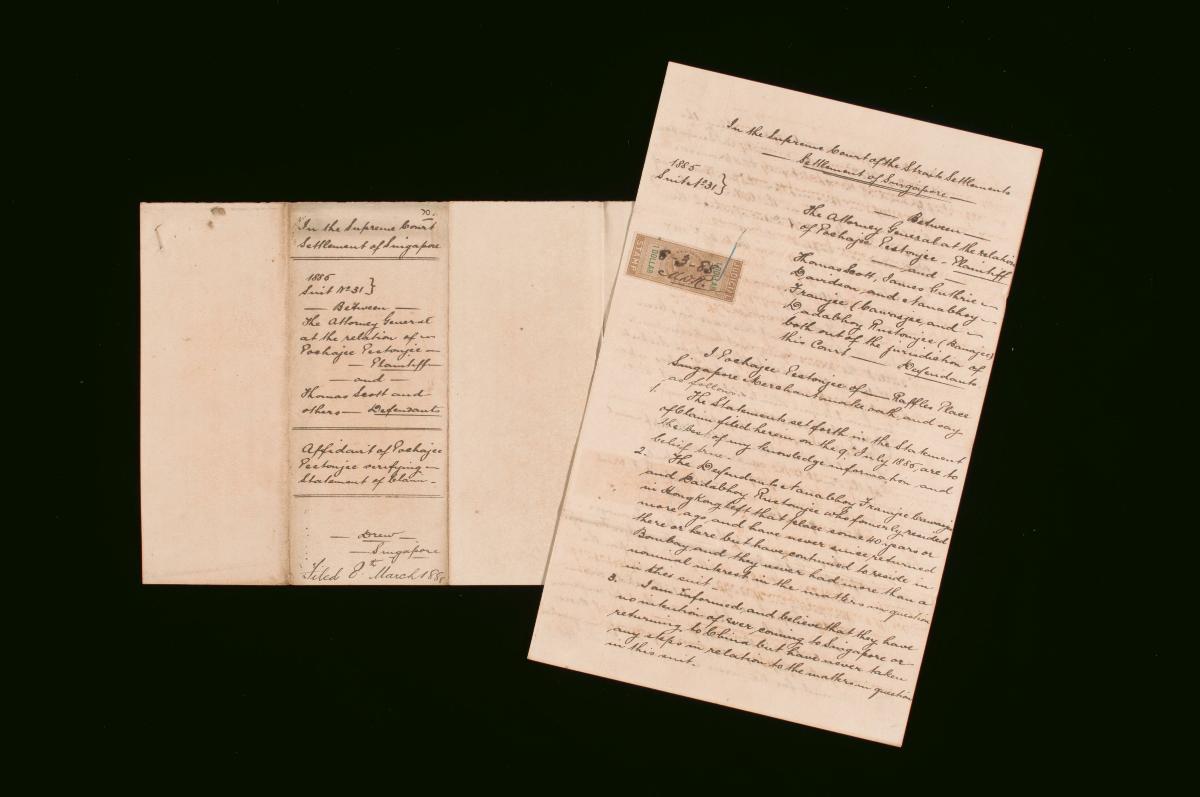 70.
In the Supreme Court
Settlement of Singapore
1885
Suit No 31 }
— Between —
The Attorney General
at the relation of
Pochajee Pestonjee —
— Plaintiff
— and —
Thomas Scott and
others — Defendants
Affidavit of Pochajee
Pestonjee verifying —
Statement of Claim —
— Drew —
— Singapore
Filed 8th March 188
In the Supreme Court of the Straits Settlements
— Settlement of Singapore —
1885
Suit No 31 }
— Between —
The Attorney General at the relation
of Pochajee Pestonjee — Plaintiff
— and —
Thomas Scott, James Guthrie
Davidson and Nanabhoy
Framjee Cawasjee, and
Dadabhoy Rustomjee (Banajee)
both out of the jurisdiction of
this Court — Defendants
STAMP
1 DOLLAR
DOLLAR
JUDICIAL
8-3-8
I Pochajee Pestonjee of — Raffles Place
Singapore Merchant make oath, and say
as follows
1. The Statements set forth in the Statement
of Claim filed herein on the 9th July 1885, are to
the best of my knowledge information, and
belief true.
2. The Defendants Nanabhoy Framjee Cawasjee
and Dadabhoy Rustomjee who formerly resided
in Hongkong left that place some 40 years or
more ago, and have never since returned
there or here but have continued to reside in
Bombay, and they never had more than a
nominal interest in the matters in question
in this suit.
3. I am informed, and believe that they have
no intention of ever coming to Singapore or
returning to China but have never taken
any steps in relation to the matters in question
in this suit.